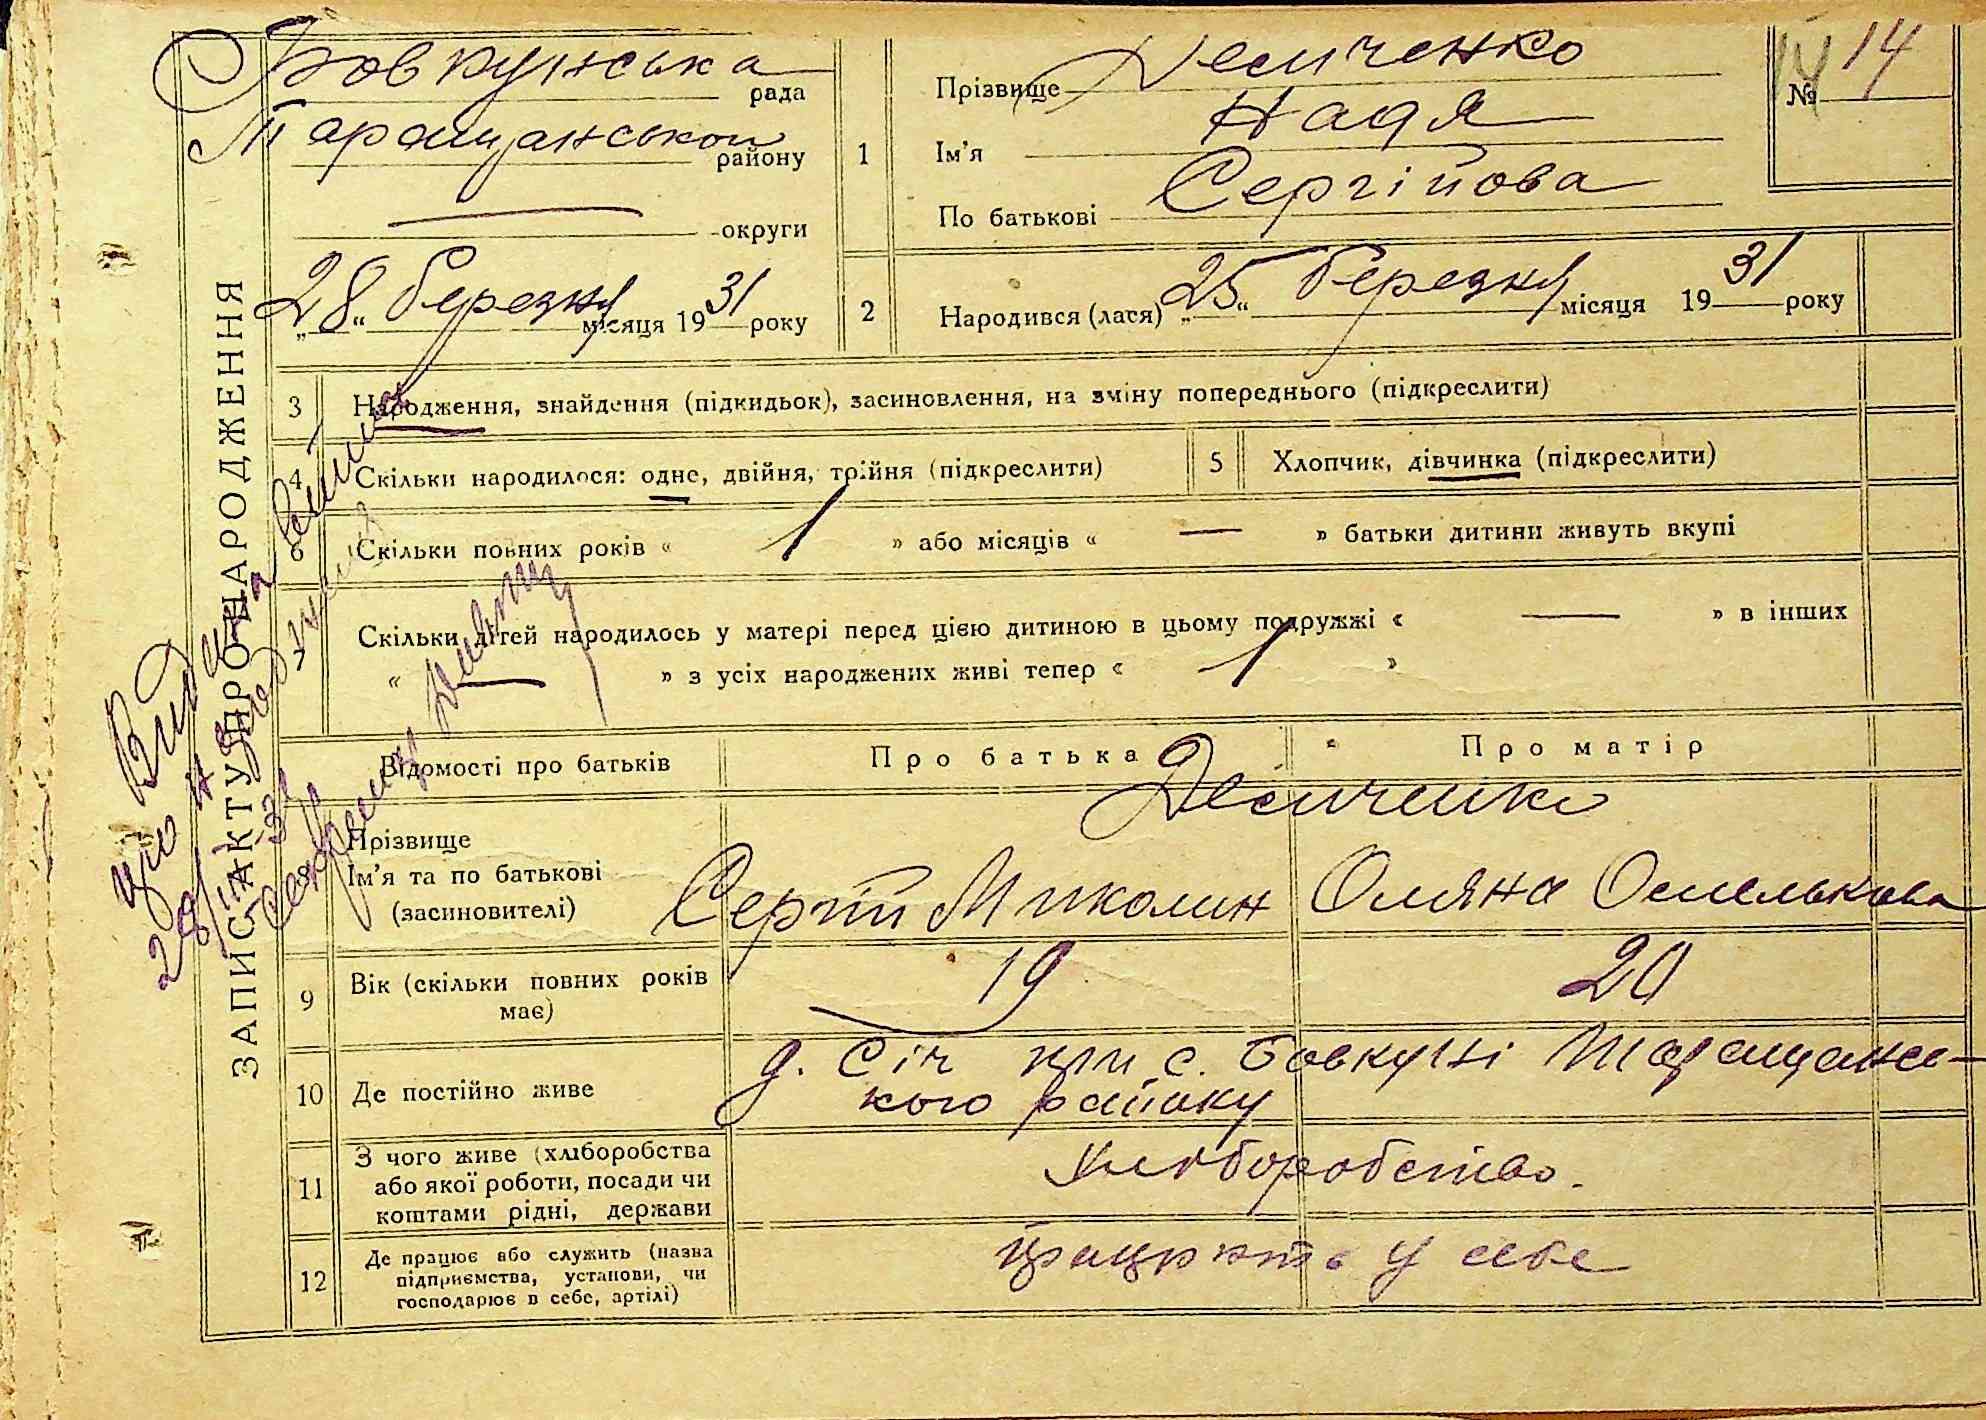 ЗАПИС АКТУ ПРО НАРОДЖЕННЯ
Бовкунська рада
Таращанського району
— округи
„28“ березня місяця 1931 року
1
Прізвище Демченко
Ім'я Надя
По батькові Сергійова
№ 14
14
2
Народився (лася) „25“ березня місяця 1931 року
3 Народження, знайдення (підкидьок), засиновлення, на зміну попереднього (підкреслити)
4 Скільки народилося: одне, двійня, трійня (підкреслити)
5 Хлопчик, дівчинка (підкреслити)
6 Скільки повних років « 1 » або місяців « — » батьки дитини живуть вкупі
7 Скільки дітей народилось у матері перед цією дитиною в цьому подружжі « — » в інших
« — » з усіх народжених живі тепер « 1 »
Відомості про батьків Про батька Про матір
8 Прізвище Демченко
Ім'я та по батькові
(засиновителі)
Сергій Миколин Омяна Омелькова
9 Вік (скільки повних років
має)
19 20
10 Де постійно живе
д. Січ при с. Бовкуні Таращансь-
кого району
11 З чого живе (хліборобства
або якої роботи, посади чи
коштами рідні, держави
Хліборобство.
12 Де працює або служить (назва
підприємства, установи, чи
господарює в себе, артілі)
працюють у себе